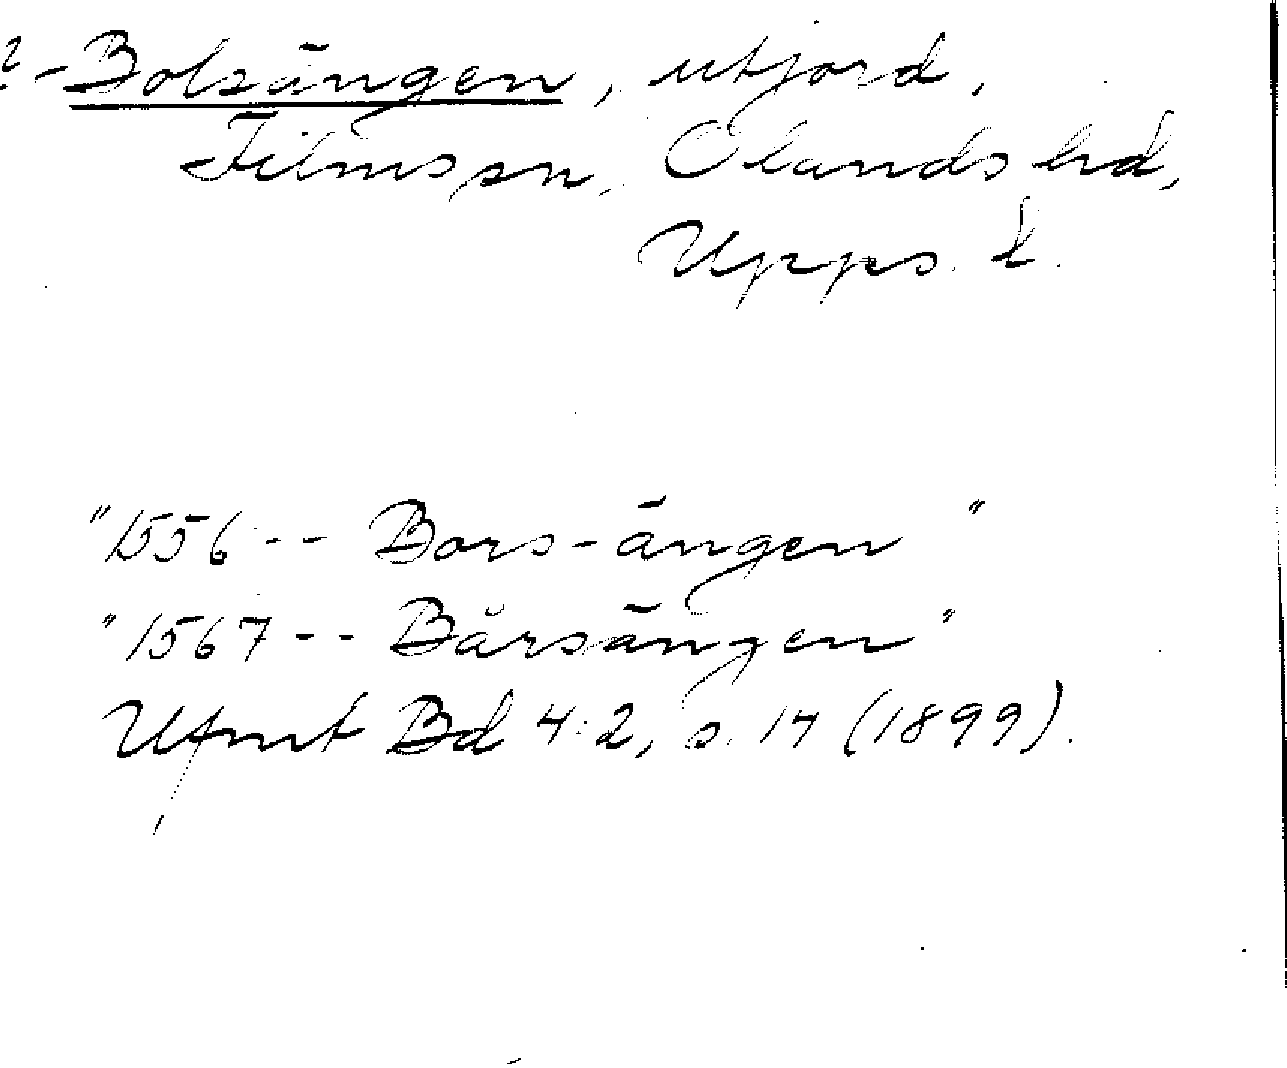 ?-Bolsängen, utjord,
Films sn, Olands hd,
Upps. l.
"1556 -- Bors-ängen"
"1567 -- Bårsängen"
Ufmt Bd 4:2, s. 17 (1899).